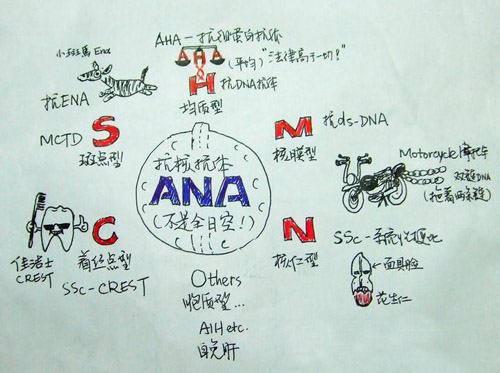 小斑馬Ena
抗ENA
MCTD
S
斑点型
AHA-抗组蛋白抗体
(平均)"法律高于一切!"
AHA
H
抗DNA抗体
均质型
M
抗ds-DNA
核膜型
Motorcycle摩托车
双链DNA
(拖着两条链)
抗核抗体
ANA
(不是全日空!)
佳洁士
CREST
C
着丝点型
SSc-CREST
N
核仁型
SSc-系统性硬化
面具脸
花生仁
Others
胞质型...
AIH etc.
自免肝